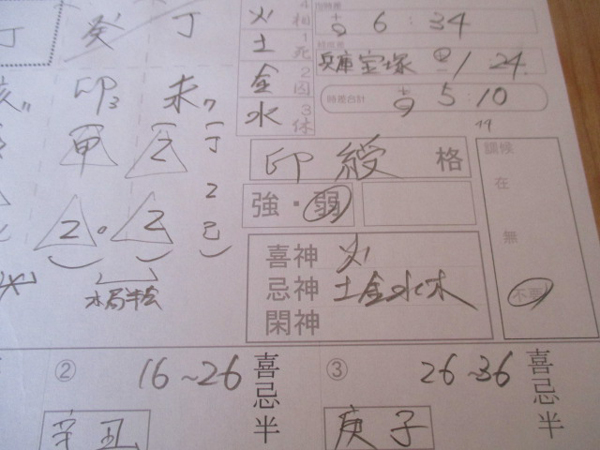 丁 癸 丁
火 4 相
土 1 死
金 2 囚
水 3 休
6:34
兵庫 宝塚 1/24
時差合計 5:10
亥 卯 未
甲 乙 丁
乙 乙 乙
己
水局半会
印綬 格
強・弱
喜神 火
忌神 土金水木
閑神
調候
在
無
不要
② 16~26 喜忌半
辛丑
③ 26~36 喜忌半
庚子